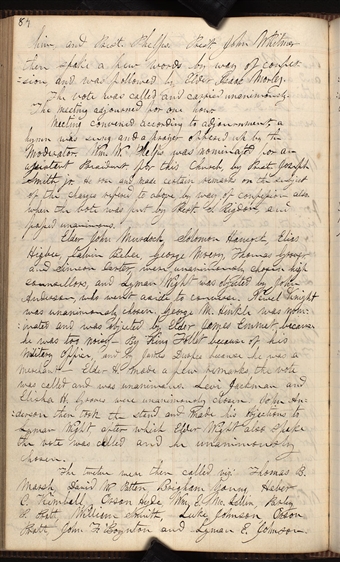 84
him, and Prest. Phelps Prest. John Whitmer
then spoke a few words by way of confes-
sion, and was followed by Elder Isaac Morley.
The vote was called and carried unanimously.
The meeting adjourned for one hour
Meeting convened according to adjournment a
hymn was sung and a prayer offered up by the
Moderator. Wm W. Phelps was nominated for an
assistant President for this Church, by Prest Joseph
Smith jr. He rose and made certain remarks on the subject
of the charges refered to above by way of confession also
when the vote was put by Prest. S. Rigdon, and
passed unanimous.
Elder John Murdock, Solomon Hancock, Elias
Higbee, Calvin Bebee, George Morey, Thomas Grover
and Simeon Carter, were unanimously chosen high
counsellors, and Lyman Wight was objected by John
Anderson, who went aside to converse. Newel Knight
was unanimously chosen. George M. Hinkle was nomi-
nated and was objected by Elder James Emmet because
he was too noisy By King Follet because of his
Military office, and by James Dunlap because he was a
merchant Elder H. made a few remarks the vote
was called and was unanimous. Levi Jackman and
Elisha H. Groves were unanimously chosen. John An-
derson then took the stand and made his objections to
Lyman Wight after which Elder Wight also spake
the vote was called and he unanimously
chosen.
The twelve were then called viz. Thomas B.
Marsh David W. Patten, Brigham Young, Heber
C. Kimball, Orson Hyde Wm E. McLellin, Parley
P. Pratt, William Smith, Luke Johnson Orson
Pratt, John F. Boynton and Lyman E. Johnson.